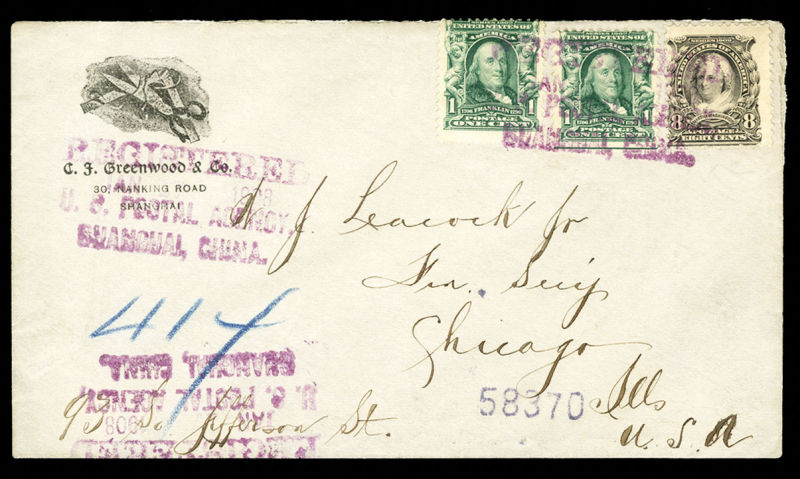 SERIES 1902
UNITED STATES OF
AMERICA
1706 FRANKLIN 1790
1 POSTAGE 1
ONE CENT
SERIES 1902
UNITED STATES OF
AMERICA
1706 FRANKLIN 1790
1 POSTAGE 1
ONE CENT
SERIES 1902
UNITED STATES OF AMERICA
8 POSTAGE 8
EIGHT CENTS
SHANGHAI, CHINA.
REGISTERED
C. F. Greenwood & Co.
30, NANKING ROAD
SHANGHAI
U. S. POSTAL AGENCY,
SHANGHAI, CHINA.
J. Leacock Jr
Chicago
Ills
U. S. A
417
58370
SHANGHAI, CHINA.
U. S. POSTAL AGENCY,
JAN
1908
REGISTERED
So Jefferson St.